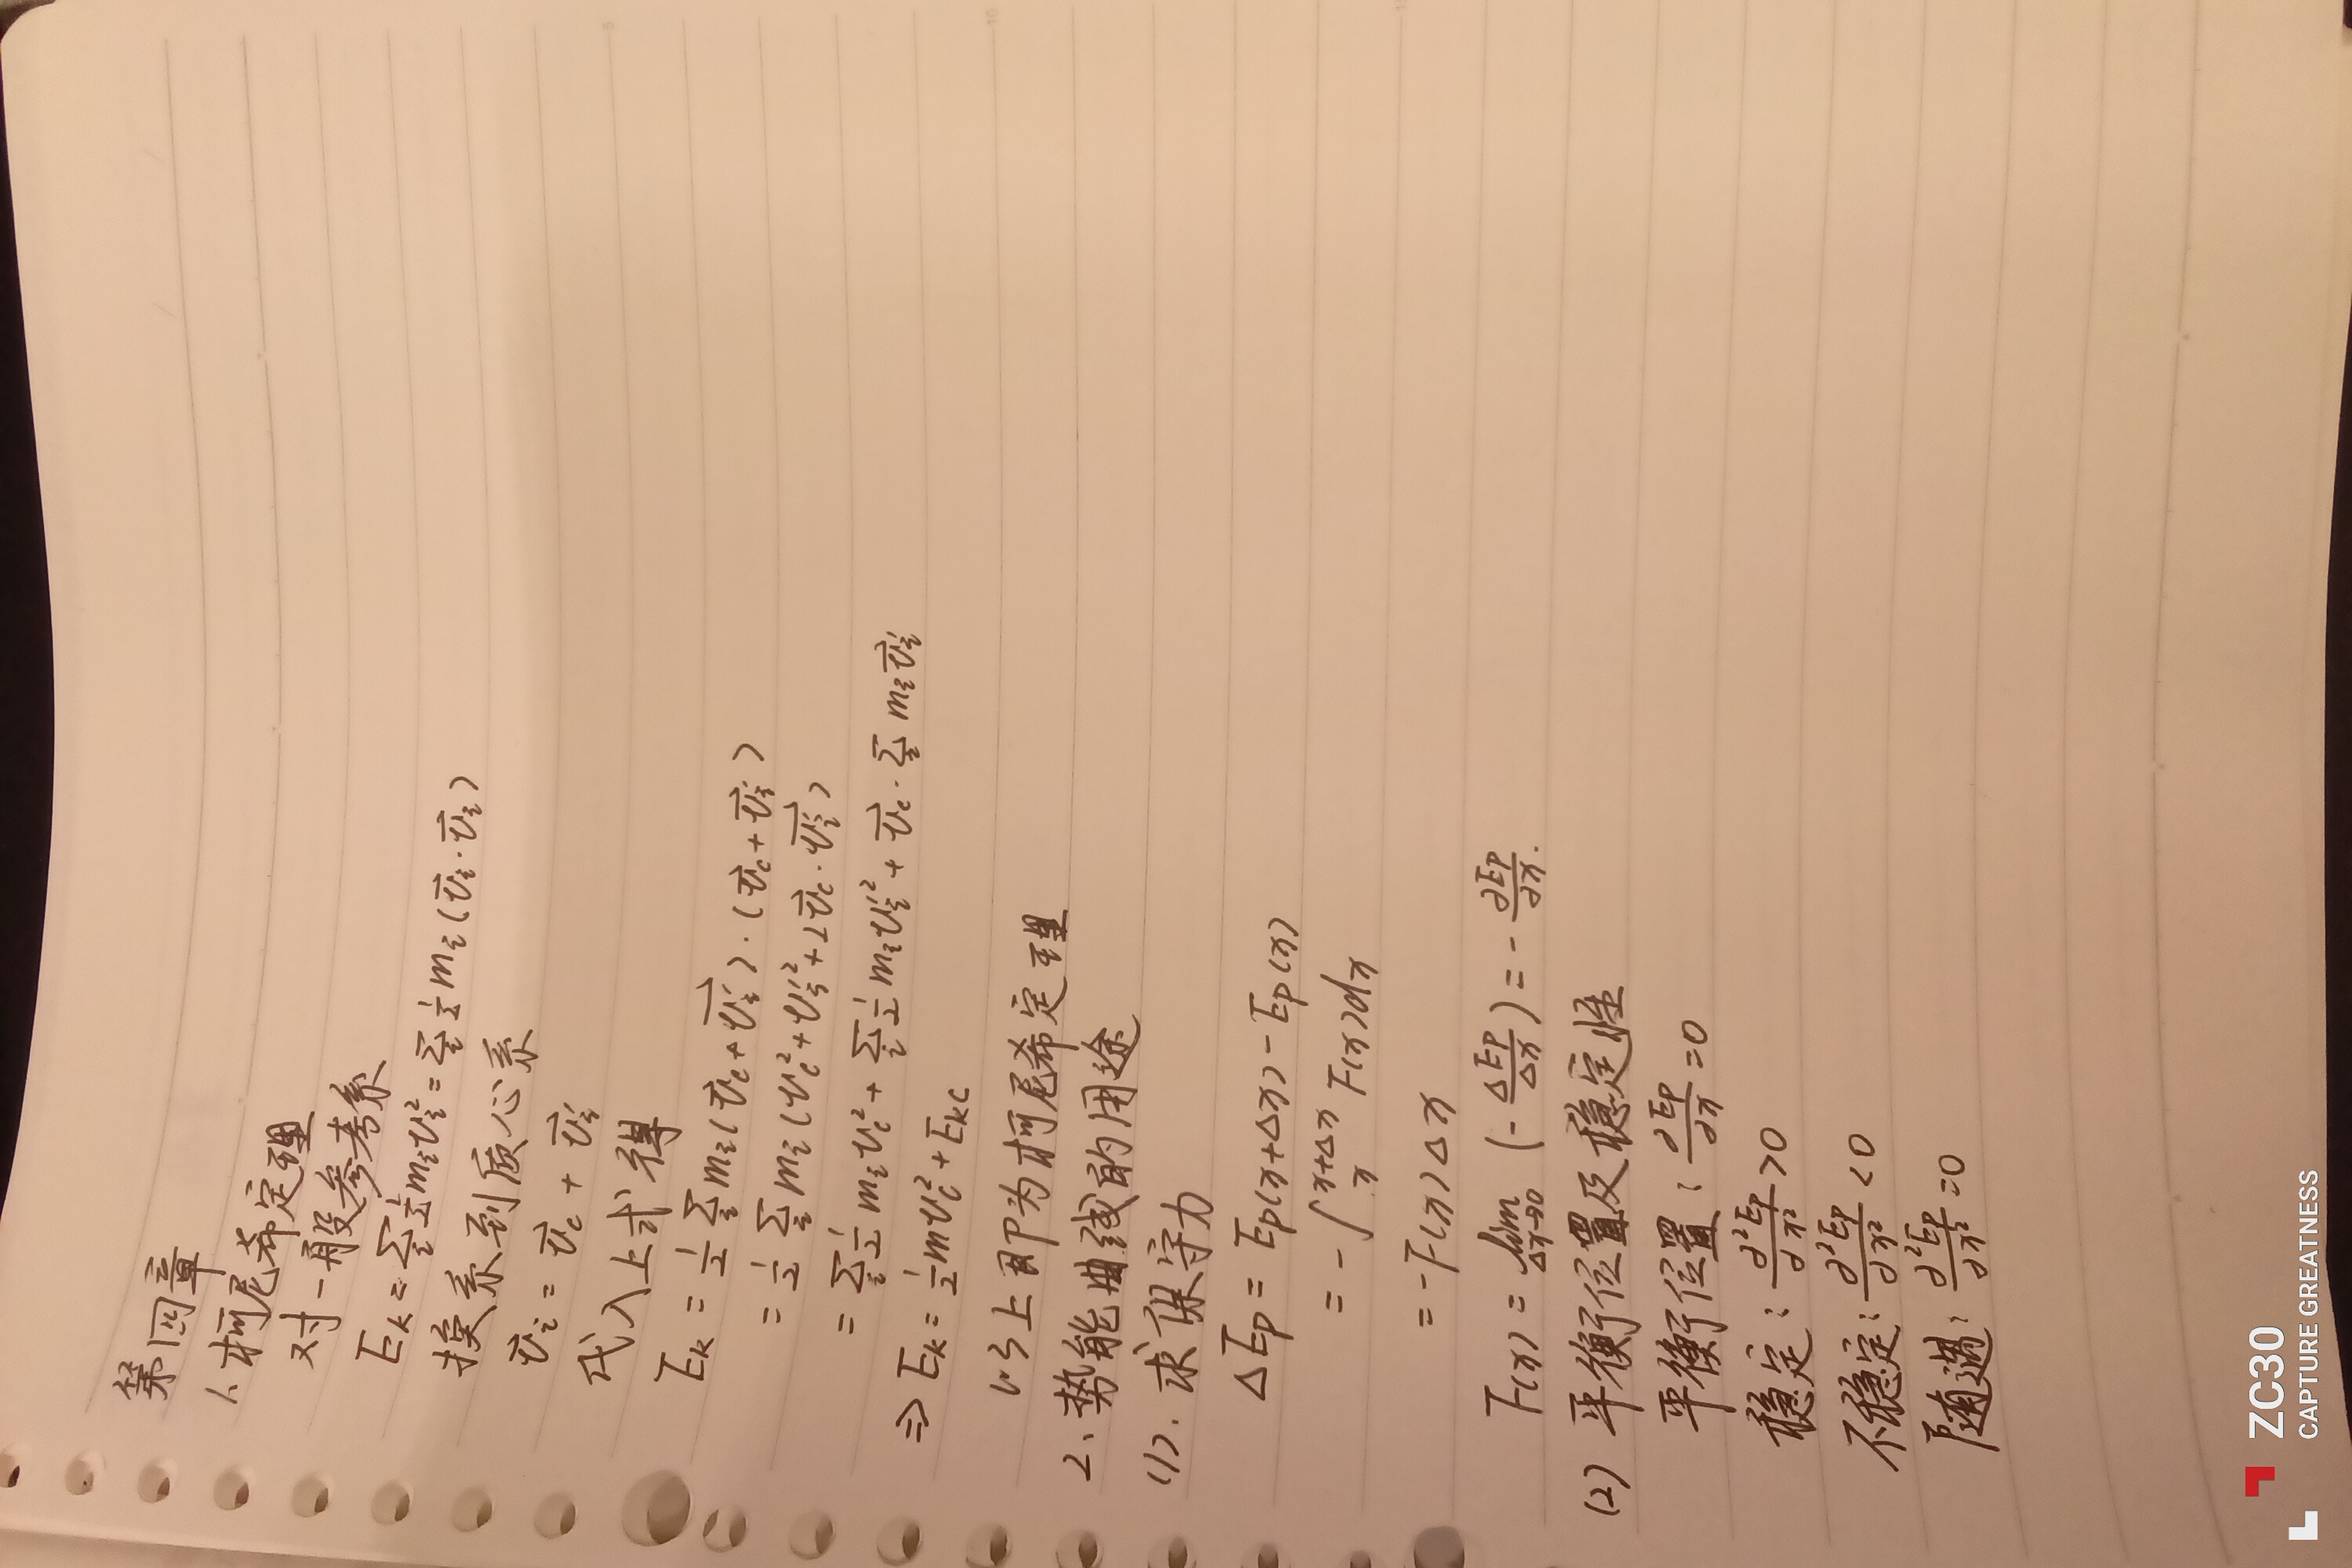 第四章
1、柯尼希定理
对一般参考系
Eₖ = Σᵢ ½mᵢvᵢ² = Σᵢ ½ mᵢ(v⃗ᵢ·v⃗ᵢ)
换系到质心系
v⃗ᵢ = v⃗c + v⃗ᵢ′
代入上式得
Eₖ = ½ Σᵢ mᵢ(v⃗c + v⃗ᵢ′)·(v⃗c + v⃗ᵢ′)
= ½ Σᵢ mᵢ(vc² + vᵢ′² + 2v⃗c·v⃗ᵢ′)
= Σᵢ ½ mᵢvc² + Σᵢ ½ mᵢvᵢ′² + v⃗c·Σᵢ mᵢv⃗ᵢ′
⇒ Eₖ = ½mvc² + Ekc
以上即为柯尼希定理
2、势能曲线的用途
(1). 求保守力
ΔEp = Ep(x+Δx) - Ep(x)
= -∫ₓ^(x+Δx) F(x)dx
= -F(x)Δx
F(x) = lim Δx→0 (-ΔEp/Δx) = -∂Ep/∂x.
(2) 平衡位置及稳定性
平衡位置: ∂Ep/∂x = 0
稳定: ∂²Ep/∂x² > 0
不稳定: ∂²Ep/∂x² < 0
随遇: ∂²Ep/∂x² = 0
ZC30
CAPTURE GREATNESS